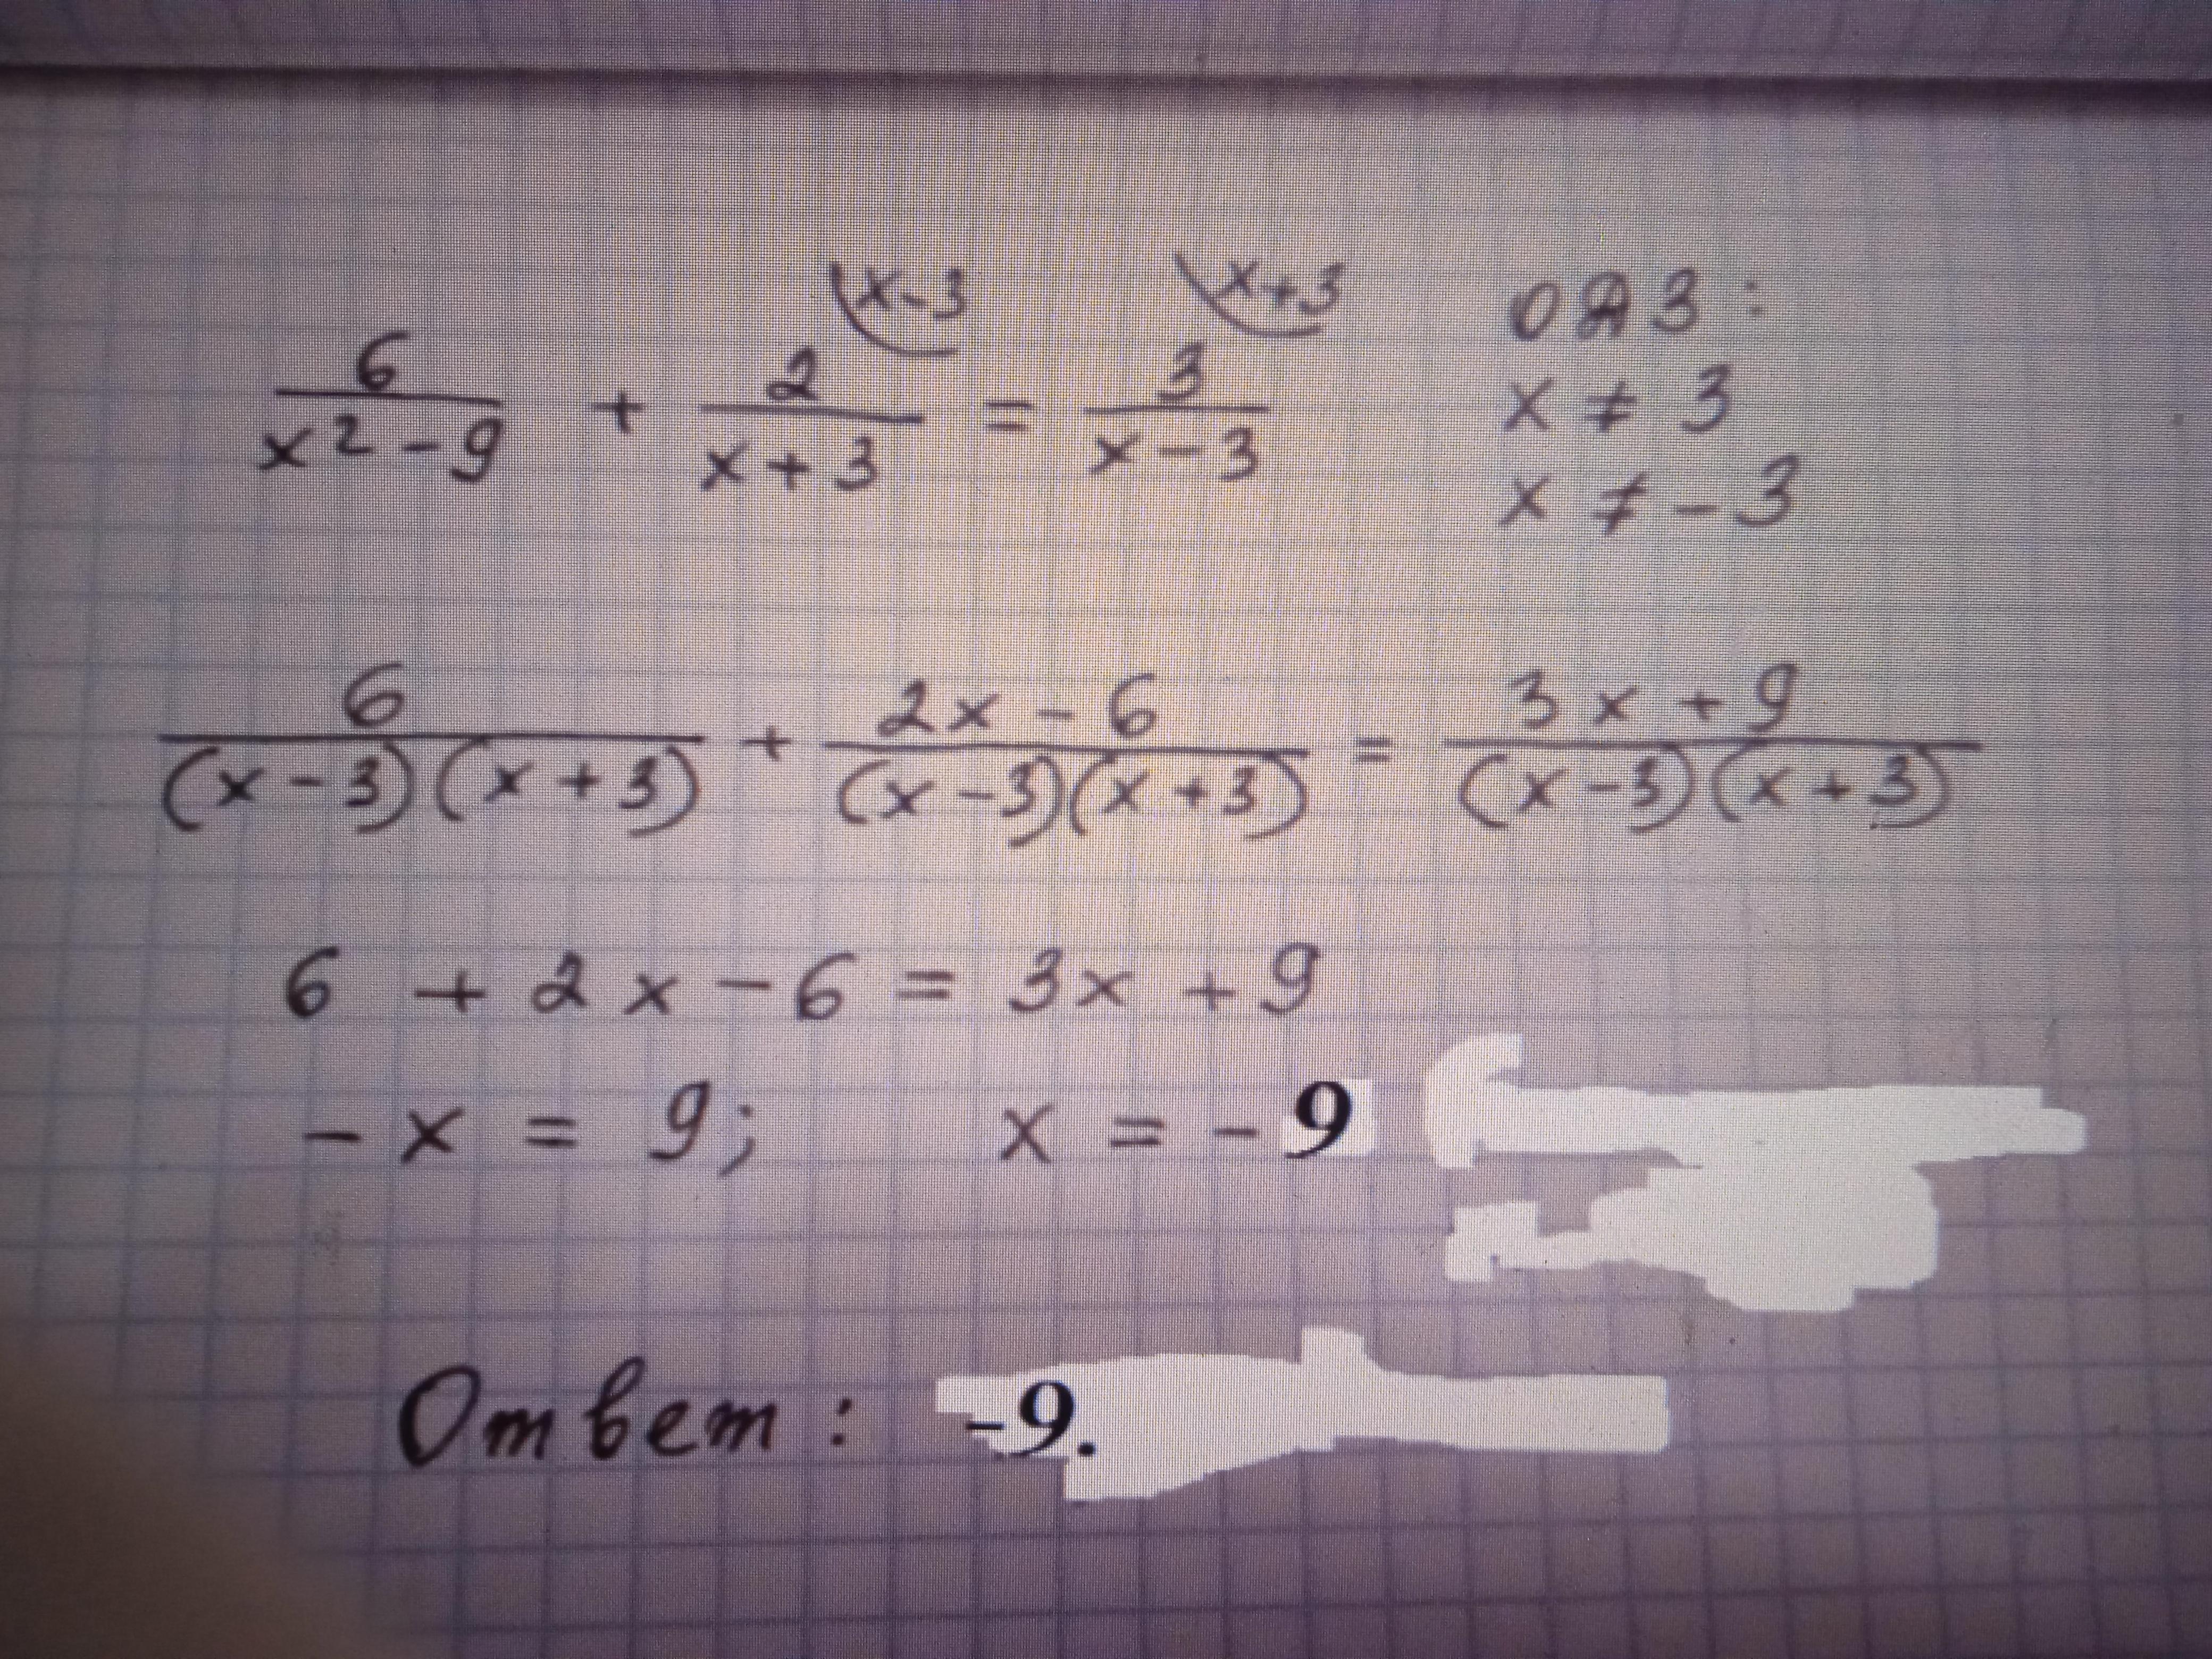 6/(x² - 9) + 2/(x + 3) \x-3 = 3/(x - 3) \x+3 ОДЗ:
x ≠ 3
x ≠ -3
6/((x - 3)(x + 3)) + (2x - 6)/((x - 3)(x + 3)) = (3x + 9)/((x - 3)(x + 3))
6 + 2x - 6 = 3x + 9
- x = 9; x = - 9
Ответ: -9.